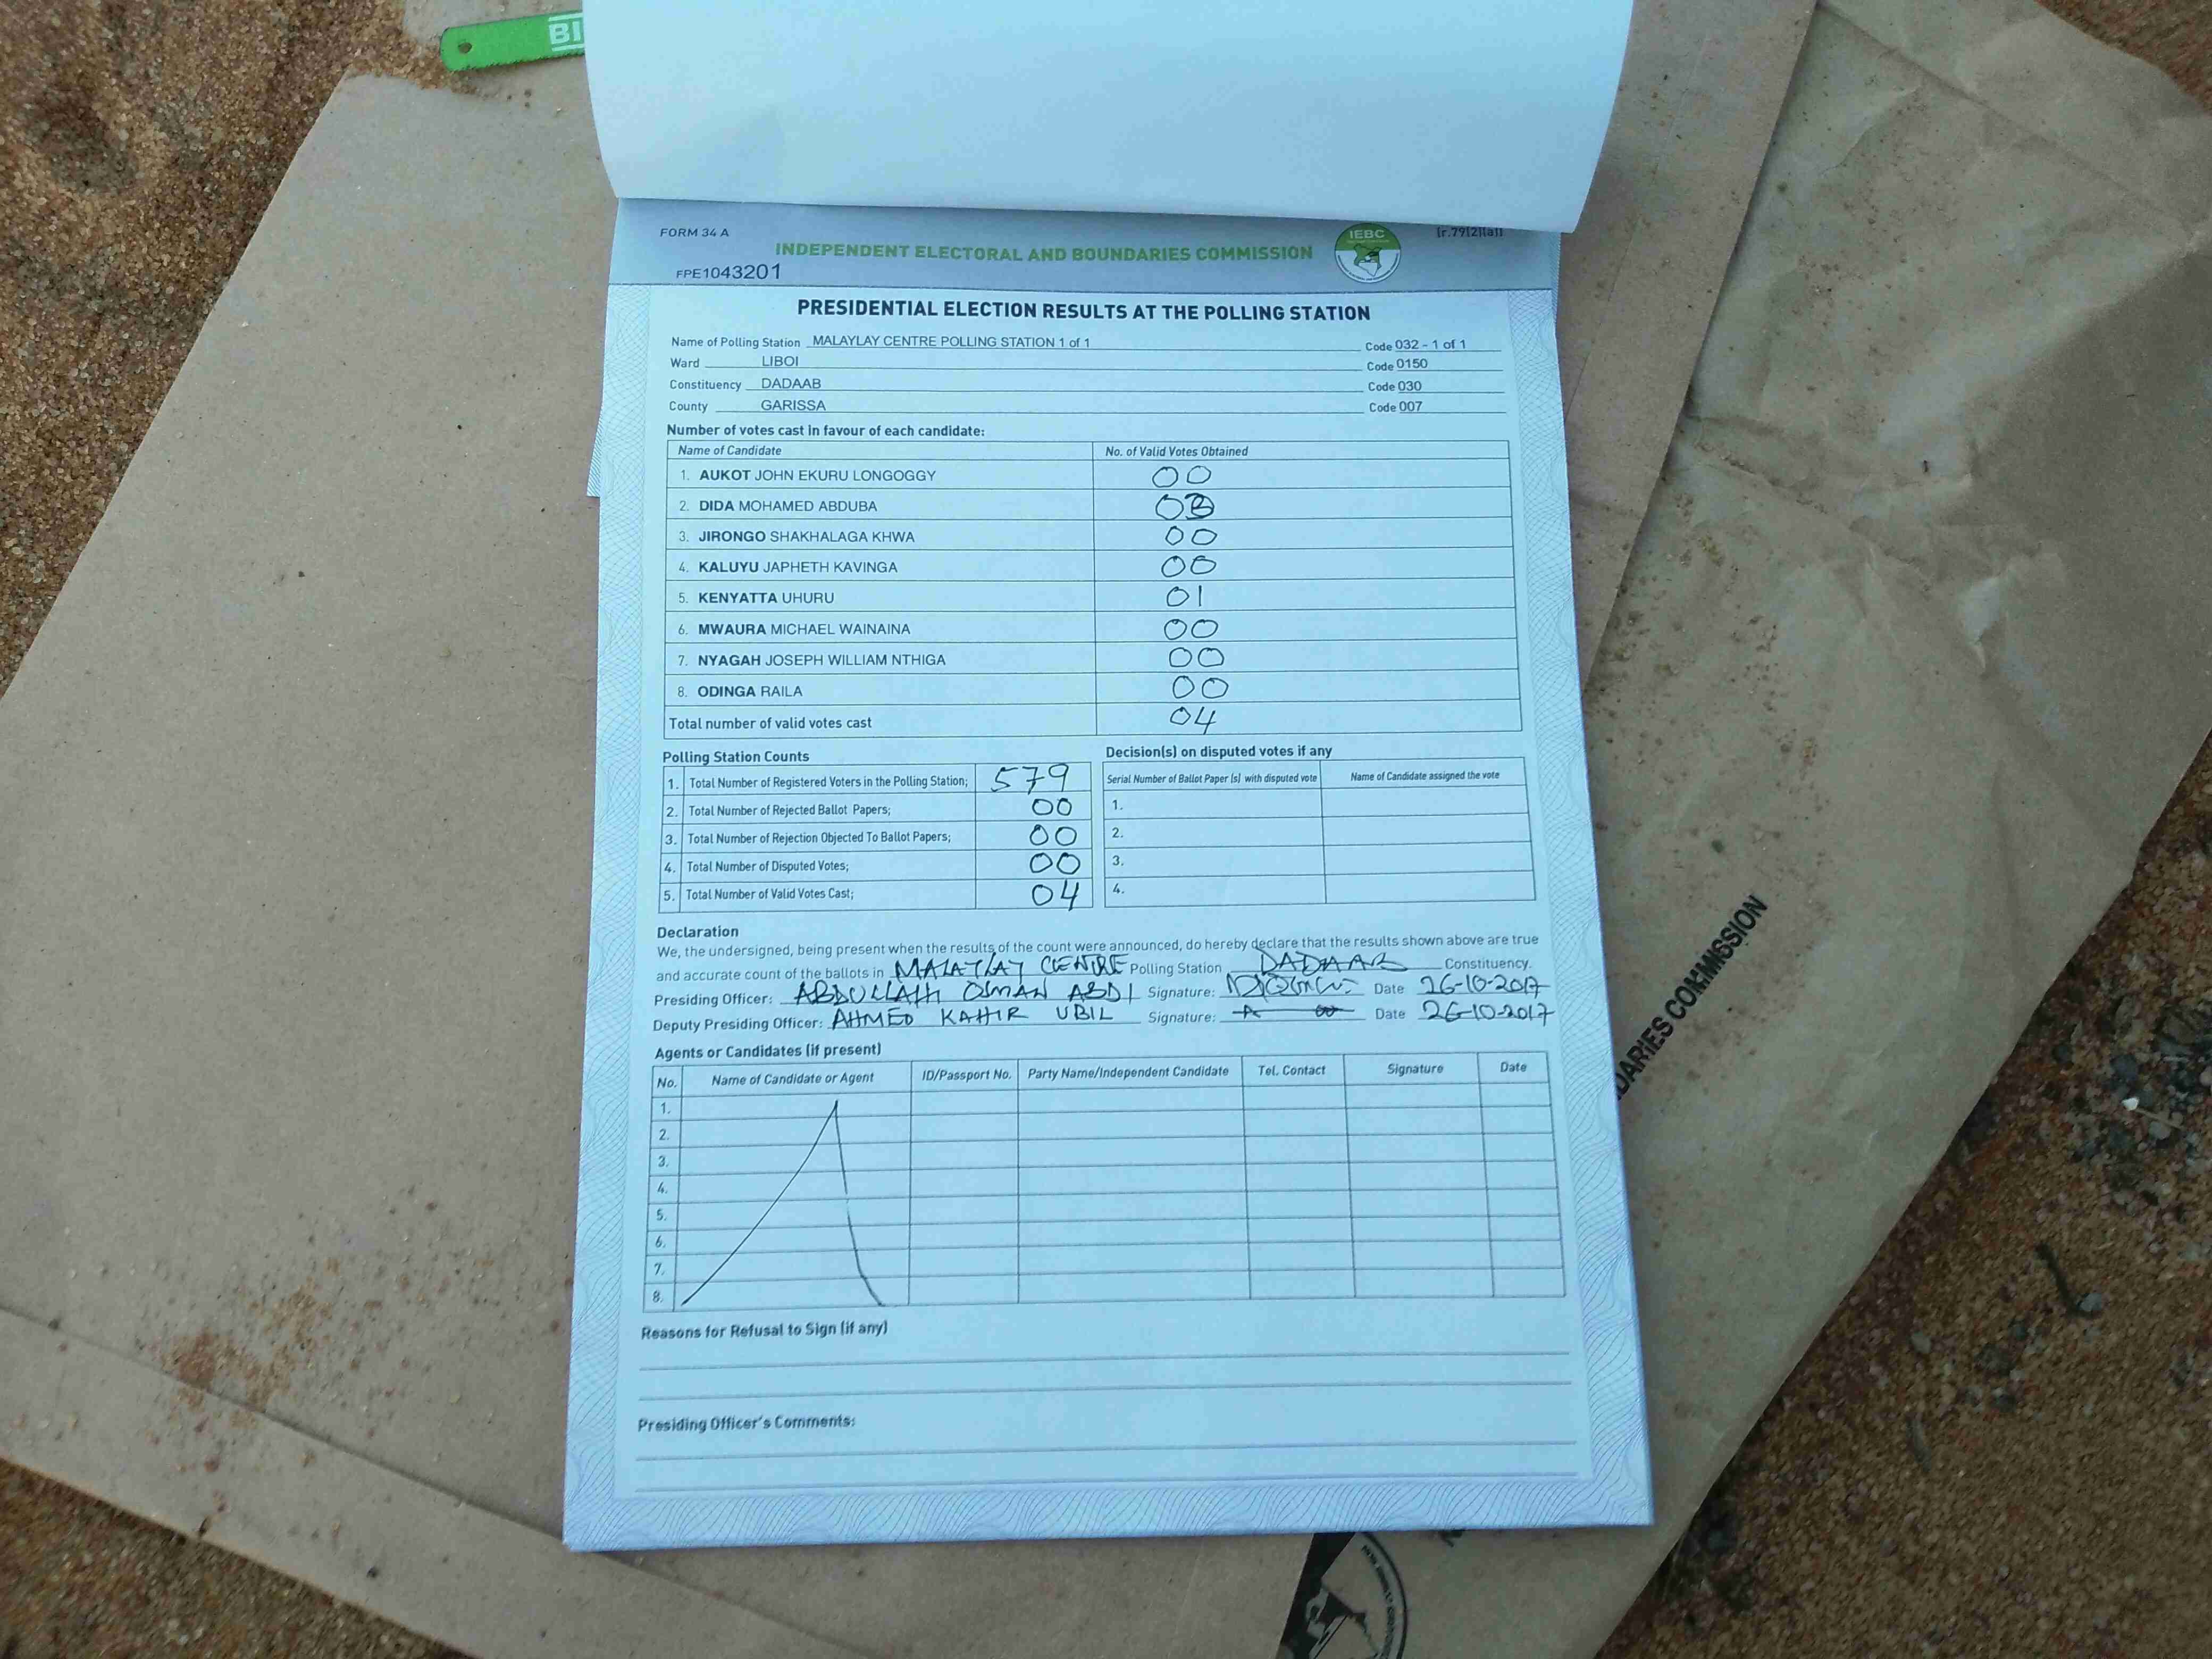 BI
FORM 34 A
[r.79(2)(a)]
INDEPENDENT ELECTORAL AND BOUNDARIES COMMISSION
IEBC
FPE1043201
PRESIDENTIAL ELECTION RESULTS AT THE POLLING STATION
Name of Polling Station MALAYLAY CENTRE POLLING STATION 1 of 1 Code 032 - 1 of 1
Ward LIBOI Code 0150
Constituency DADAAB Code 030
County GARISSA Code 007
Number of votes cast in favour of each candidate:
Name of Candidate No. of Valid Votes Obtained
1. AUKOT JOHN EKURU LONGOGGY 00
2. DIDA MOHAMED ABDUBA 03
3. JIRONGO SHAKHALAGA KHWA 00
4. KALUYU JAPHETH KAVINGA 00
5. KENYATTA UHURU 01
6. MWAURA MICHAEL WAINAINA 00
7. NYAGAH JOSEPH WILLIAM NTHIGA 00
8. ODINGA RAILA 00
Total number of valid votes cast 04
Polling Station Counts
1. Total Number of Registered Voters in the Polling Station; 579
2. Total Number of Rejected Ballot Papers; 00
3. Total Number of Rejection Objected To Ballot Papers; 00
4. Total Number of Disputed Votes; 00
5. Total Number of Valid Votes Cast; 04
Decision(s) on disputed votes if any
Serial Number of Ballot Paper (s) with disputed vote Name of Candidate assigned the vote
1.
2.
3.
4.
Declaration
We, the undersigned, being present when the results of the count were announced, do hereby declare that the results shown above are true
and accurate count of the ballots in MALAYLAY CENTRE Polling Station DADAAB Constituency.
Presiding Officer: ABDULLAHI OSMAN ABDI Signature: Date 26-10-2017
Deputy Presiding Officer: AHMED KAHIR UBIL Signature: Date 26-10-2017
Agents or Candidates (if present)
No. Name of Candidate or Agent ID/Passport No. Party Name/Independent Candidate Tel. Contact Signature Date
1.
2.
3.
4.
5.
6.
7.
8.
Reasons for Refusal to Sign (if any)
Presiding Officer's Comments:
DARIES COMMISSION